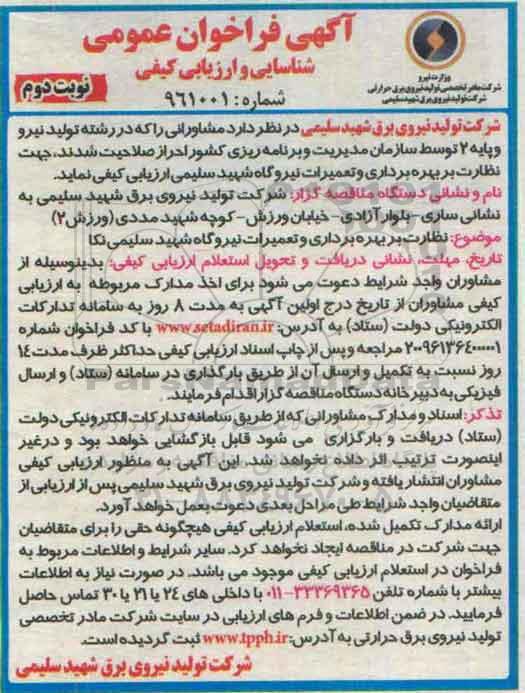 آگهی فراخوان عمومی
شناسایی و ارزیابی کیفی
شماره: ۹۶۱۰۰۱
نوبت دوم
وزارت نیرو
شرکت مادر تخصصی تولید نیروی برق حرارتی
شرکت تولید نیروی برق شهید سلیمی
شرکت تولید نیروی برق شهید سلیمی در نظر دارد مشاورانی را که در رشته تولید نیرو
و پایه ۲ توسط سازمان مدیریت و برنامه ریزی کشور احراز صلاحیت شدند، جهت
نظارت بر بهره برداری و تعمیرات نیروگاه شهید سلیمی ارزیابی کیفی نماید.
نام و نشانی دستگاه مناقصه گزار: شرکت تولید نیروی برق شهید سلیمی به
نشانی ساری- بلوار آزادی- خیابان ورزش- کوچه شهید مددی (ورزش۲)
موضوع: نظارت بر بهره برداری و تعمیرات نیروگاه شهید سلیمی نکا
تاریخ، مهلت، نشانی دریافت و تحویل استعلام ارزیابی کیفی: بدینوسیله از
مشاوران واجد شرایط دعوت می شود برای اخذ مدارک مربوطه به ارزیابی
کیفی مشاوران از تاریخ درج اولین آگهی به مدت ۸ روز به سامانه تدارکات
الکترونیکی دولت (ستاد) به آدرس: www.setadiran.ir با کد فراخوان شماره
۲۰۰۹۶۱۳۶۴۰۰۰۰۰۱ مراجعه و پس از چاپ اسناد ارزیابی کیفی حداکثر ظرف مدت ۱۴
روز نسبت به تکمیل و ارسال آن از طریق بارگذاری در سامانه (ستاد) و ارسال
فیزیکی به دبیرخانه دستگاه مناقصه گزار اقدام فرمایند.
تذکر: اسناد و مدارک مشاورانی که از طریق سامانه تدارکات الکترونیکی دولت
(ستاد) دریافت و بارگزاری می شود قابل بازگشایی خواهد بود و درغیر
اینصورت ترتیب اثر داده نخواهد شد. این آگهی به منظور ارزیابی کیفی
مشاوران انتشار یافته و شرکت تولید نیروی برق شهید سلیمی پس از ارزیابی از
متقاضیان واجد شرایط طی مراحل بعدی دعوت بعمل خواهد آورد.
ارائه مدارک تکمیل شده، استعلام ارزیابی کیفی هیچگونه حقی را برای متقاضیان
جهت شرکت در مناقصه ایجاد نخواهد کرد. سایر شرایط و اطلاعات مربوط به
فراخوان در استعلام ارزیابی کیفی موجود می باشد. در صورت نیاز به اطلاعات
بیشتر با شماره تلفن ۳۳۳۶۹۳۶۵-۰۱۱ با داخلی های ۲۴ یا ۲۱ یا ۳۰ تماس حاصل
فرمایید. در ضمن اطلاعات و فرم های ارزیابی در سایت شرکت مادر تخصصی
تولید نیروی برق حرارتی به آدرس: www.tpph.ir ثبت گردیده است.
شرکت تولید نیروی برق شهید سلیمی